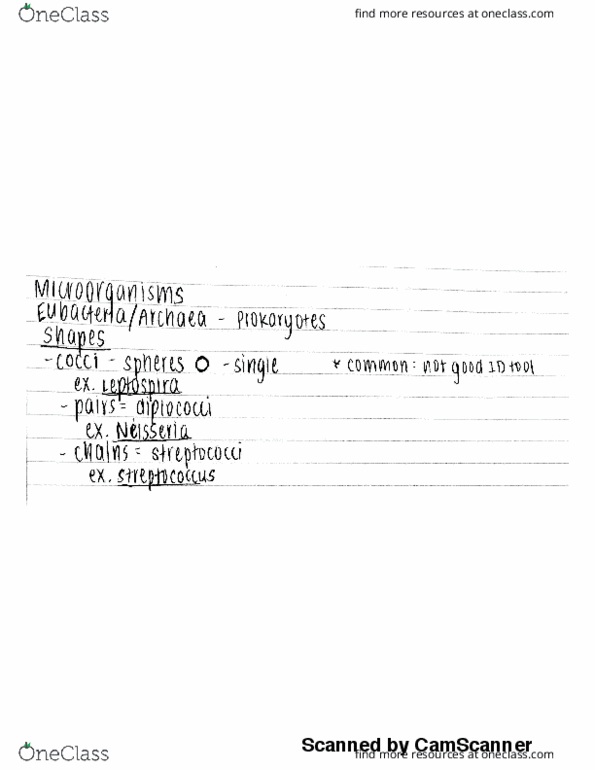 OneClass
find more resources at oneclass.com
Microorganisms
Eubacteria/Archaea - Prokaryotes
Shapes
-cocci - spheres O -single * common: not good ID tool
ex. Leptospira
- pairs = diplococci
ex. Neisseria
- chains = streptococci
ex. streptococcus
Scanned by CamScanner
OneClass
find more resources at oneclass.com